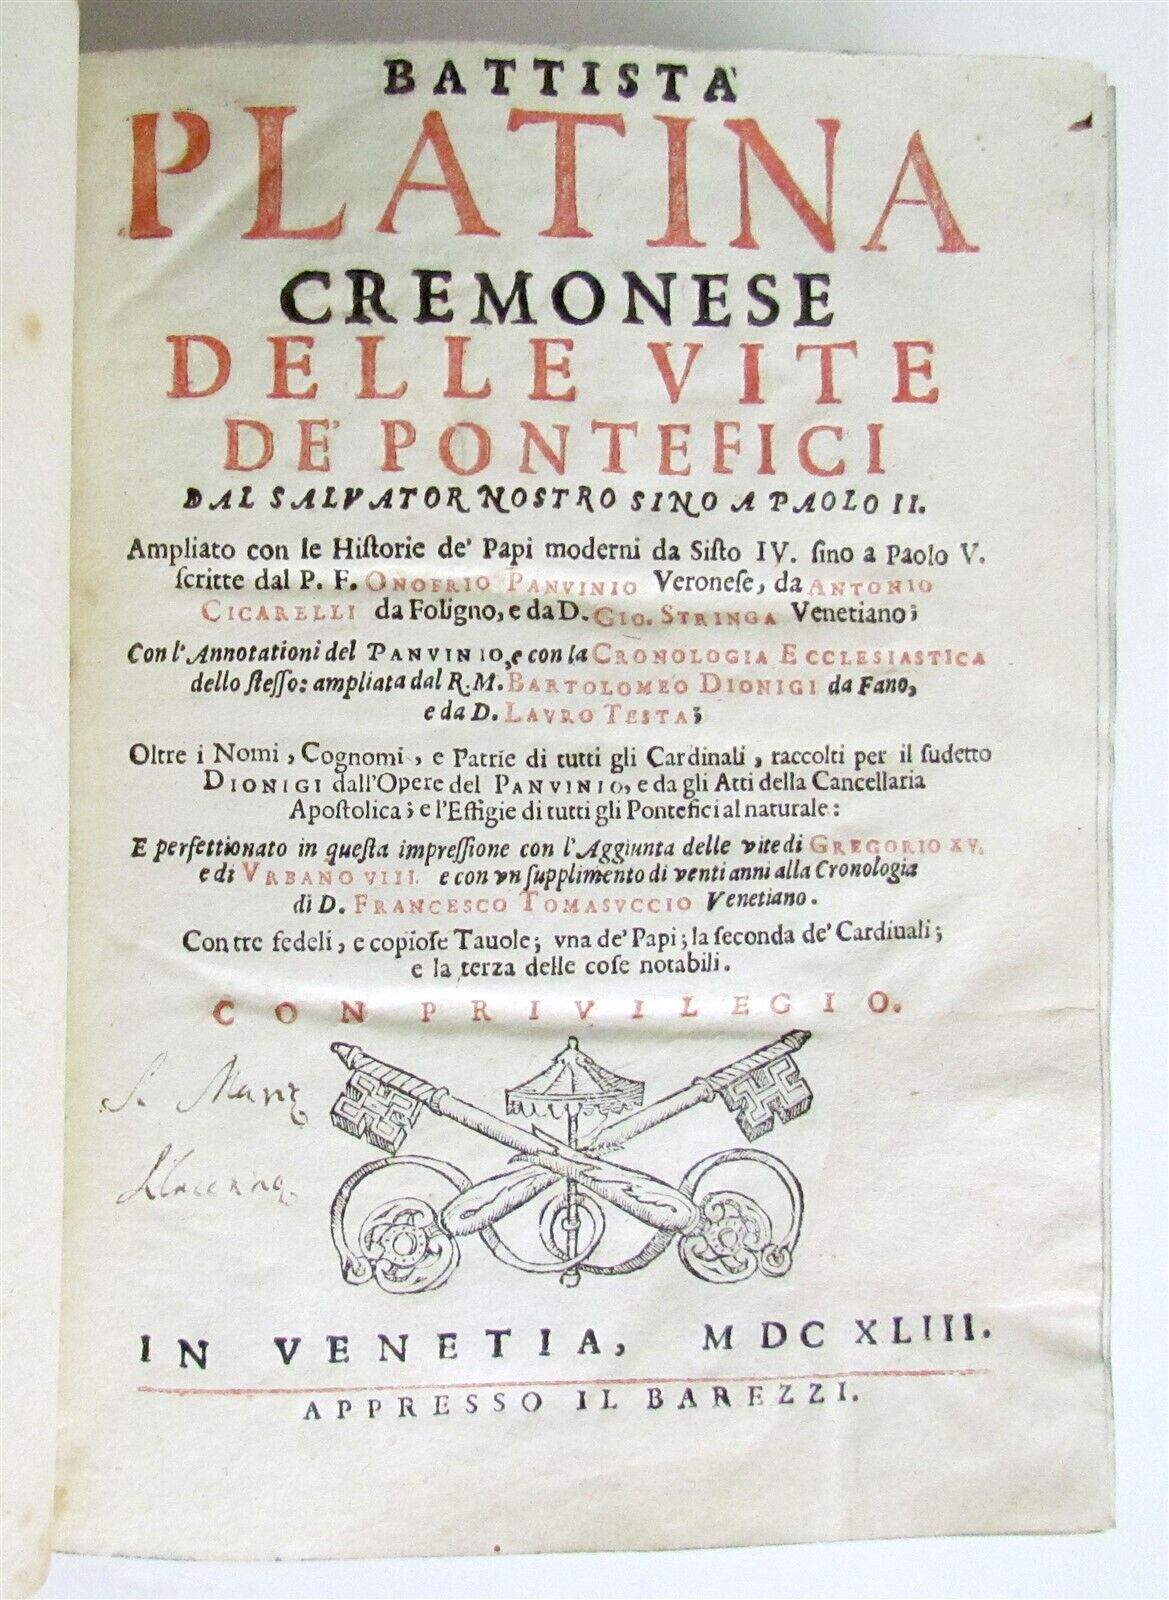 BATTISTA
PLATINA
CREMONESE
DELLE VITE
DE' PONTEFICI
DAL SALVATOR NOSTRO SINO A PAOLO II.
Ampliato con le Hiſtorie de' Papi moderni da Siſto IV. ſino a Paolo V.
ſcritte dal P. F. ONOFRIO PANVINIO Veroneſe, da ANTONIO
CICARELLI da Foligno, e da D. GIO. STRINGA Venetiano;
Con l'Annotationi del PANVINIO, e con la CRONOLOGIA ECCLESIASTICA
dello ſteſſo: ampliata dal R. M. BARTOLOMEO DIONIGI da Fano,
e da D. LAVRO TESTA;
Oltre i Nomi, Cognomi, e Patrie di tutti gli Cardinali, raccolti per il ſudetto
DIONIGI dall'Opere del PANVINIO, e da gli Atti della Cancellaria
Apoſtolica; e l'Effigie di tutti gli Pontefici al naturale:
E perfettionato in queſta impreſſione con l'Aggiunta delle vite di GREGORIO XV.
e di VRBANO VIII. e con vn ſupplimento di venti anni alla Cronologia
di D. FRANCESCO TOMASVCCIO Venetiano.
Con tre fedeli, e copioſe Tauole; vna de' Papi; la ſeconda de' Cardinali;
e la terza delle coſe notabili.
CON PRIVILEGIO.
IN VENETIA, MDCXLIII.
APPRESSO IL BAREZZI.